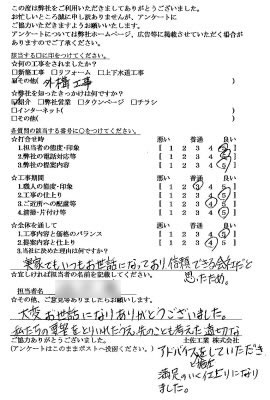 この度は弊社をご利用いただきましてありがとうございました。
お忙しいところ誠に申し訳ありませんが、アンケートに
ご協力いただきますようお願いいたします。
アンケートについては弊社ホームページ、広告等に掲載させていただく場合が
ありますのでご了承ください。
該当する□に印をつけてください。
☆何の工事をされましたか?
□新築工事 □リフォーム □上下水道工事
その他( 外構工事 )
☆弊社を知ったきっかけは何ですか?
紹介 □弊社営業 □タウンページ □チラシ
□インターネット( )
□その他( )
各質問の該当する番号に○をつけてください。
☆打合せ時 悪い 普通 良い
1.担当者の態度・印象 [ 1 2 3 4 5 ]
2.弊社の電話対応等 [ 1 2 3 4 5 ]
3.弊社の提案内容 [ 1 2 3 4 5 ]
☆工事期間 悪い 普通 良い
1.職人の態度・印象 [ 1 2 3 4 5 ]
2.工事の仕上り [ 1 2 3 4 5 ]
3.ご近所への配慮等 [ 1 2 3 4 5 ]
4.清掃・片付け等 [ 1 2 3 4 5 ]
☆全体を通して 悪い 普通 良い
1.工事内容と価格のバランス [ 1 2 3 4 5 ]
2.提案内容と仕上り [ 1 2 3 4 5 ]
3.当社に決めた理由は何ですか?
実家でもいつもお世話になっており信頼できる会社だと
思ったため。
☆宜しければ担当者の名前を記載してください。
担当者名
☆その他、ご意見等ありましたらお願いします。
大変お世話になりありがとうございました。
私たちの要望をとりいれたうえ、先のことも考えた適切な
ご協力ありがとうございました。 土佐工業 株式会社
(アンケートはこのままポストへ投函ください。)
アドバイスをしていただき
満足のいく仕上りになり
ました。